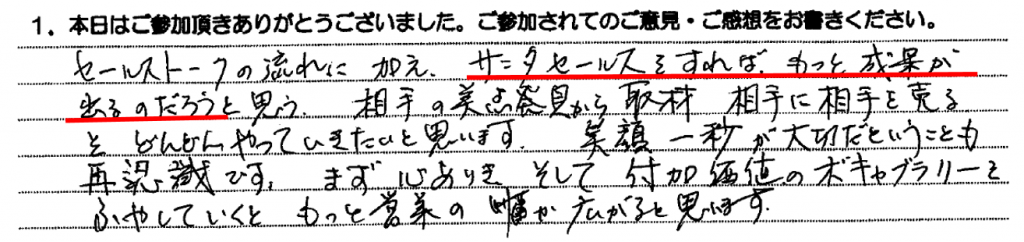 1. 本日はご参加頂きありがとうございました。ご参加されてのご意見・ご感想をお書きください。
セールストークの流れに 加え、サンタセールスをすれば、もっと成果が
出るのだろうと思う。 相手の美点発見から取材 相手に相手を売る
を どんどんやっていきたいと思います。 笑顔一秒が大切だということも
再認識です。 まず 心ありき そして 付加価値のボキャブラリーを
ふやしていくと もっと営業の幅が広がると思います。